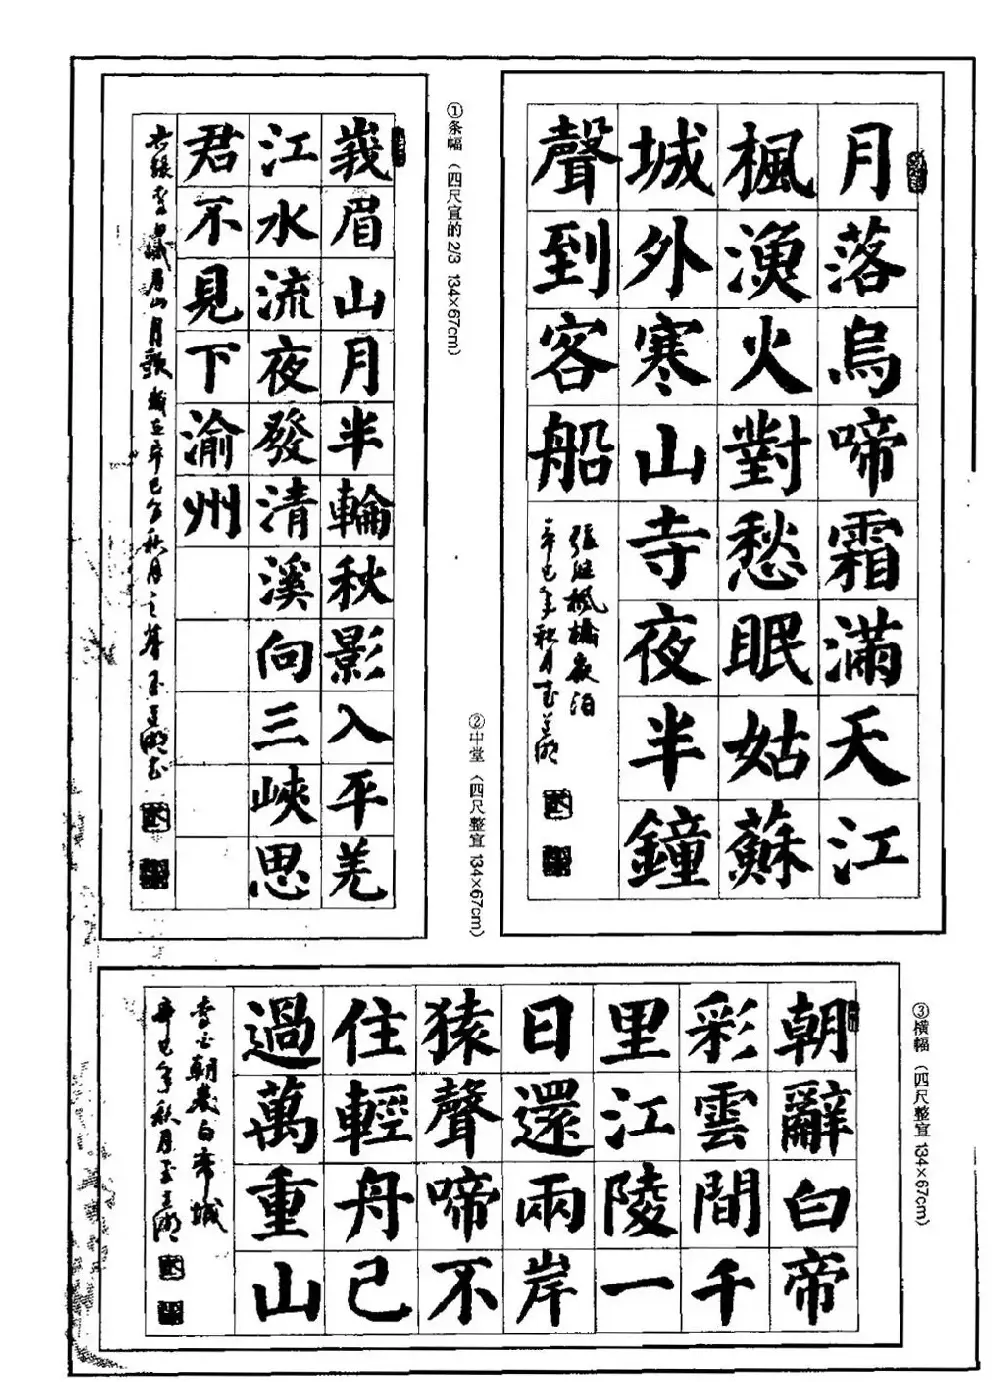 月落烏啼霜滿天江
楓漁火對愁眠姑蘇
城外寒山寺夜半鐘
聲到客船
張繼楓橋夜泊
辛巳年秋月
②中堂（四尺整宣 134×67cm）
①条幅（四尺宣的 2/3 134×67cm）
峩眉山月半輪秋影入平羌
江水流夜發清溪向三峽思
君不見下渝州
李白峨眉山月歌歲在辛巳年秋月
③横幅（四尺整宣 134×67cm）
朝辭白帝
彩雲間千
里江陵一
日還兩岸
猿聲啼不
住輕舟已
過萬重山
李白朝發白帝城
辛巳年秋月